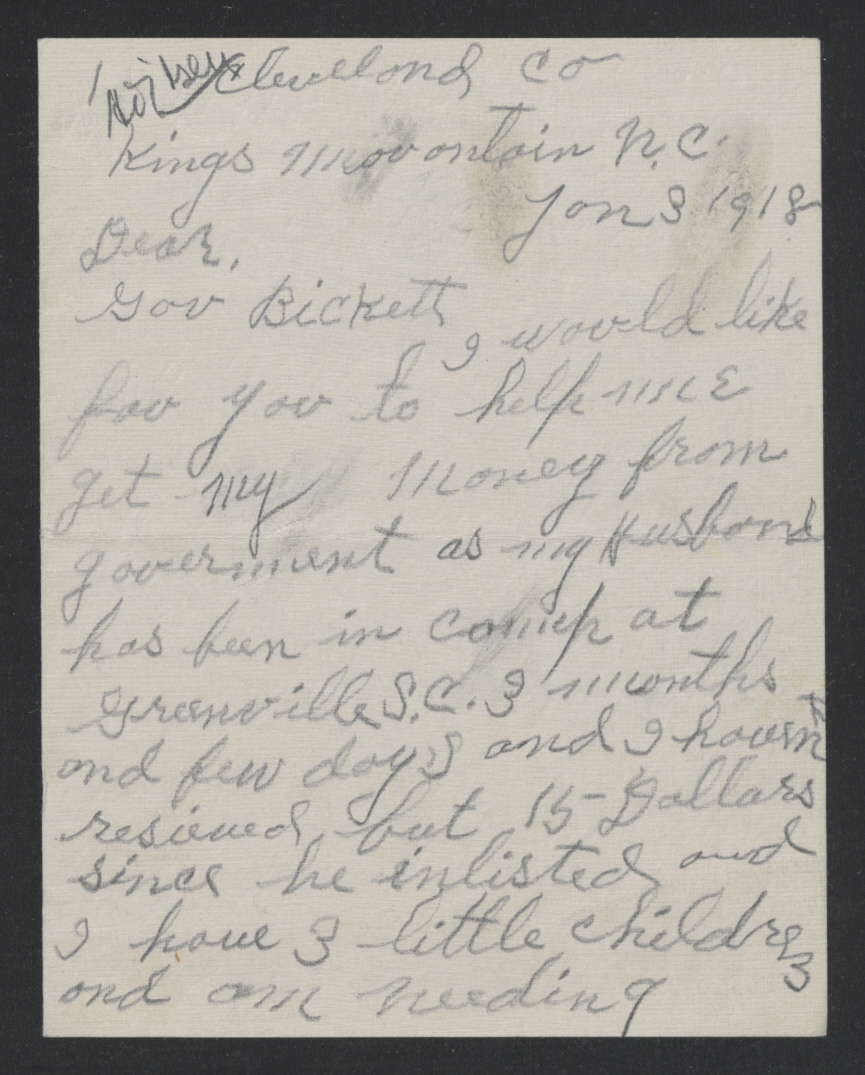 Cleveland Co
Kings Movontain N.C.
Jan 3 1918
Dear,
Gov Bickett
I would like
for you to help me
get my Money from
goverment as my Husband
has been in camp at
Greenville S.C. 3 months
and few days and I havent
resieved but 15 Dollars
since he inlisted and
I have 3 little childre
and am needing